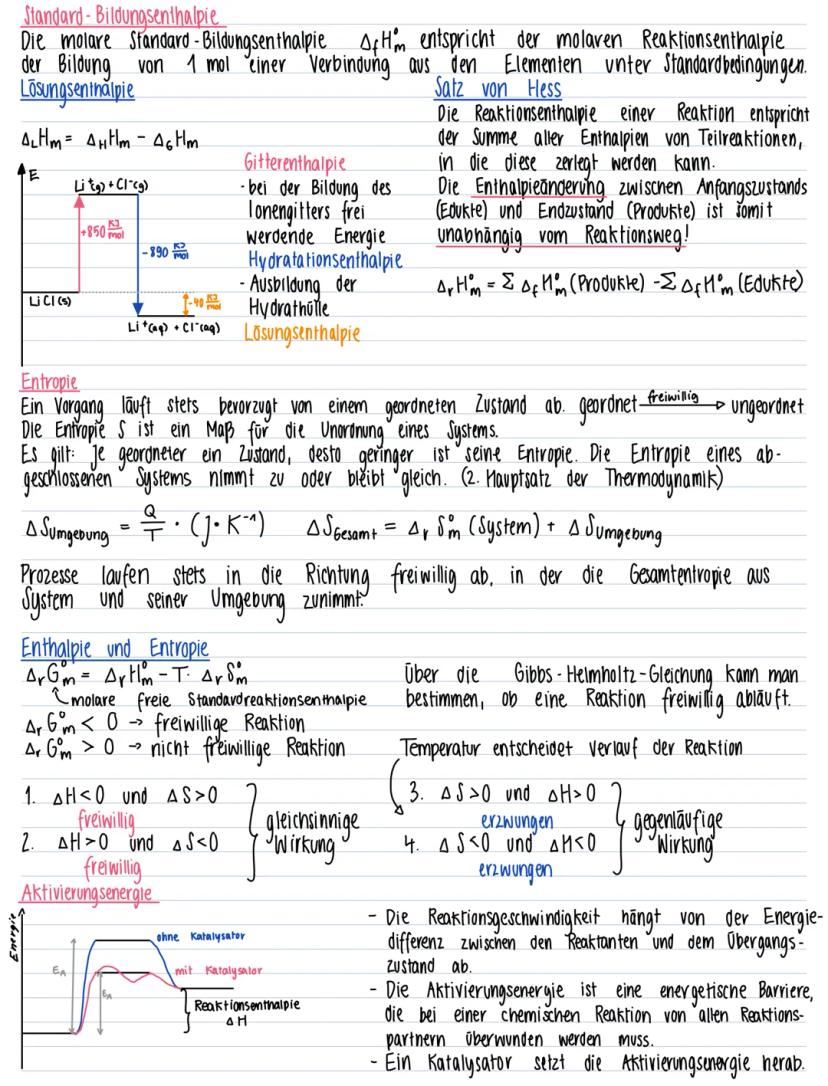 Standard-Bildungsenthalpie
Die molare Standard-Bildungsenthalpie ΔfH°m entspricht der molaren Reaktionsenthalpie
der Bildung von 1 mol einer Verbindung aus den Elementen unter Standardbedingungen.
Lösungsenthalpie
ΔLHm = ΔHHm - ΔGHm
E
Li⁺(g) + Cl⁻(g)
+850 KJ/mol
-890 KJ/mol
LiCl(s)
-40 KJ/mol
Li⁺(aq) + Cl⁻(aq)
Gitterenthalpie
- bei der Bildung des
Ionengitters frei
werdende Energie
Hydratationsenthalpie
- Ausbildung der
Hydrathülle
Lösungsenthalpie
Satz von Hess
Die Reaktionsenthalpie einer Reaktion entspricht
der Summe aller Enthalpien von Teilreaktionen,
in die diese zerlegt werden kann.
Die Enthalpieänderung zwischen Anfangszustands
(Edukte) und Endzustand (Produkte) ist somit
unabhängig vom Reaktionsweg!
ΔrH°m = Σ ΔfH°m (Produkte) - Σ ΔfH°m (Edukte)
Entropie
Ein Vorgang läuft stets bevorzugt von einem geordneten Zustand ab. geordnet freiwillig → ungeordnet
Die Entropie S ist ein Maß für die Unordnung eines Systems.
Es gilt: Je geordneter ein Zustand, desto geringer ist seine Entropie. Die Entropie eines ab-
geschlossenen Systems nimmt zu oder bleibt gleich. (2. Hauptsatz der Thermodynamik)
ΔSumgebung = Q/T · (J·K⁻¹) ΔSGesamt = ΔrS°m (System) + ΔSumgebung
Prozesse laufen stets in die Richtung freiwillig ab, in der die Gesamtentropie aus
System und seiner Umgebung zunimmt.
Enthalpie und Entropie
ΔrG°m = ΔrH°m - T · ΔrS°m
molare freie Standardreaktionsenthalpie
ΔrG°m < 0 → freiwillige Reaktion
ΔrG°m > 0 → nicht freiwillige Reaktion
Über die Gibbs-Helmholtz-Gleichung kann man
bestimmen, ob eine Reaktion freiwillig abläuft.
Temperatur entscheidet Verlauf der Reaktion
1. ΔH<0 und ΔS>0
freiwillig
2. ΔH>0 und ΔS<0
freiwillig
gleichsinnige
Wirkung
3. ΔS>0 und ΔH>0
erzwungen
4. ΔS<0 und ΔH<0
erzwungen
gegenläufige
Wirkung
Aktivierungsenergie
Energie
EA
EA
ohne Katalysator
mit Katalysator
Reaktionsenthalpie
ΔH
- Die Reaktionsgeschwindigkeit hängt von der Energie-
differenz zwischen den Reaktanten und dem Übergangs-
zustand ab.
- Die Aktivierungsenergie ist eine energetische Barriere,
die bei einer chemischen Reaktion von allen Reaktions-
partnern überwunden werden muss.
- Ein Katalysator setzt die Aktivierungsenergie herab.